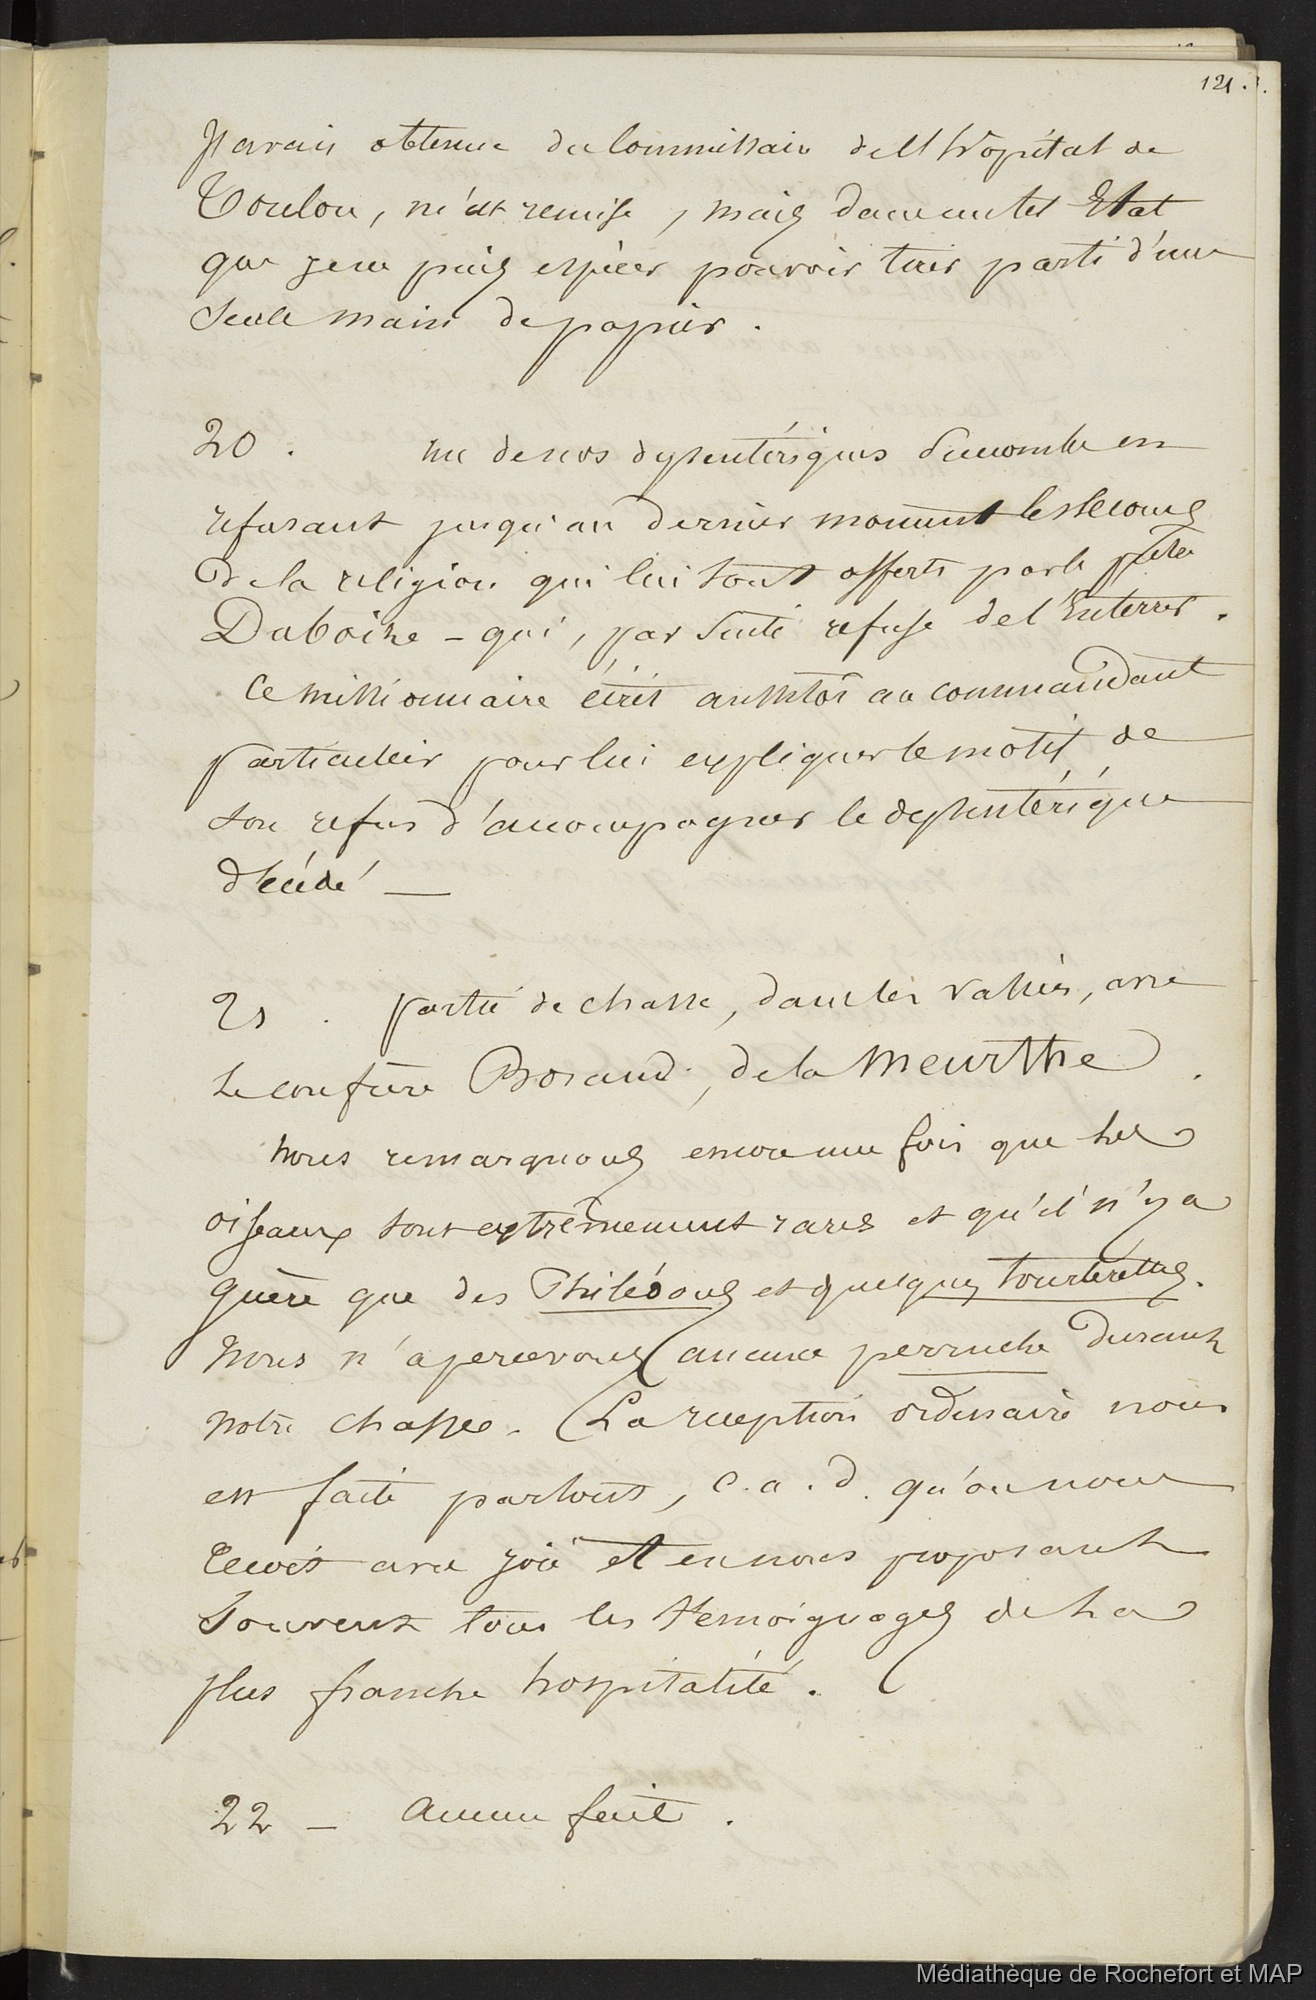 121.
j'avais obtenue du Commissaire de l'hôpital de
Toulon, m'est remise, mais dans un tel Etat
que je ne puis espérer pouvoir tirer parti d'une
seule main de papier.
20. un de nos dysentériques succombe en
refusant jusqu'au dernier moment les secours
de la religion qui lui sont offerts par le père
Duboize - qui, par suite refuse de l'Enterrer.
Ce missionnaire écrit aussitôt au commandant
particulier pour lui expliquer le motif de
son refus d'accompagner le dysentérique
décédé —
21. partie de chasse, dans les vallées, avec
le confrère, de la Meurthe.
Nous remarquons encore une fois que les
oiseaux sont extrêmement rares et qu'il n'y a
guère que des Philédons et quelques tourterelles.
Nous n'apercevons aucune perruche durant
notre chasse. La reception ordinaire nous
est faite partout, c.a.d. qu'on nous
reçoit avec joie et en nous proposant
souvent tous les témoignages de la
plus franche hospitalité.
22 — Aucun fait.
Médiathèque de Rochefort et MAP